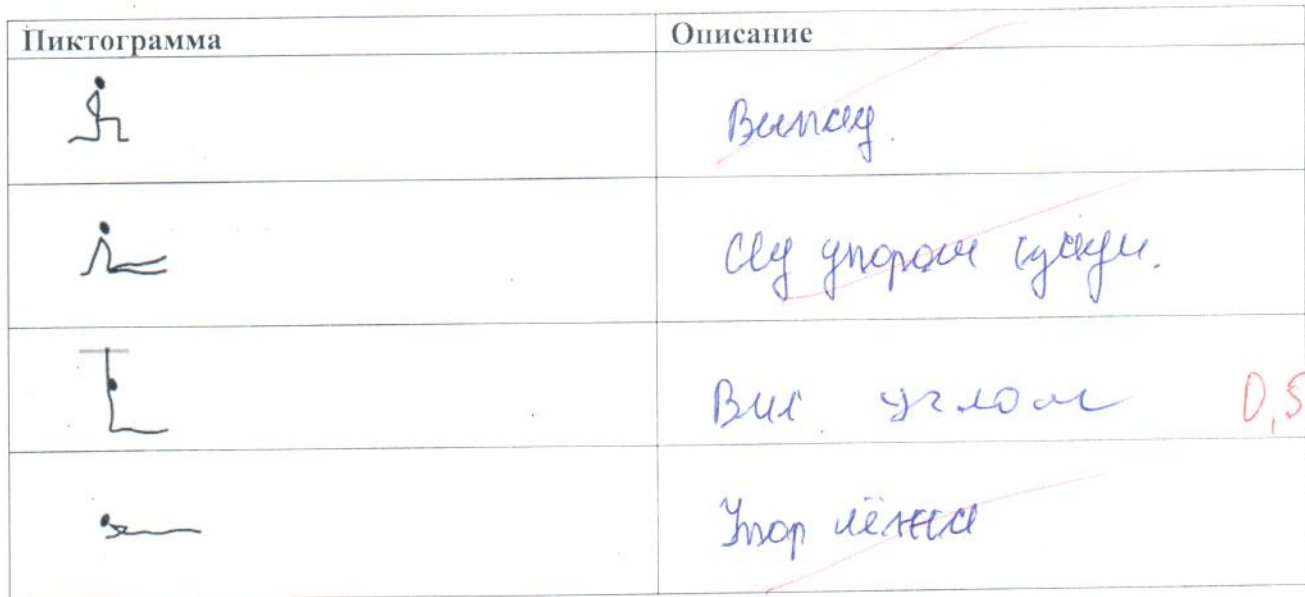 Пиктограмма Описание
Выпад.
Сед упором сзади.
Вис углом 0,5
Упор лёжа